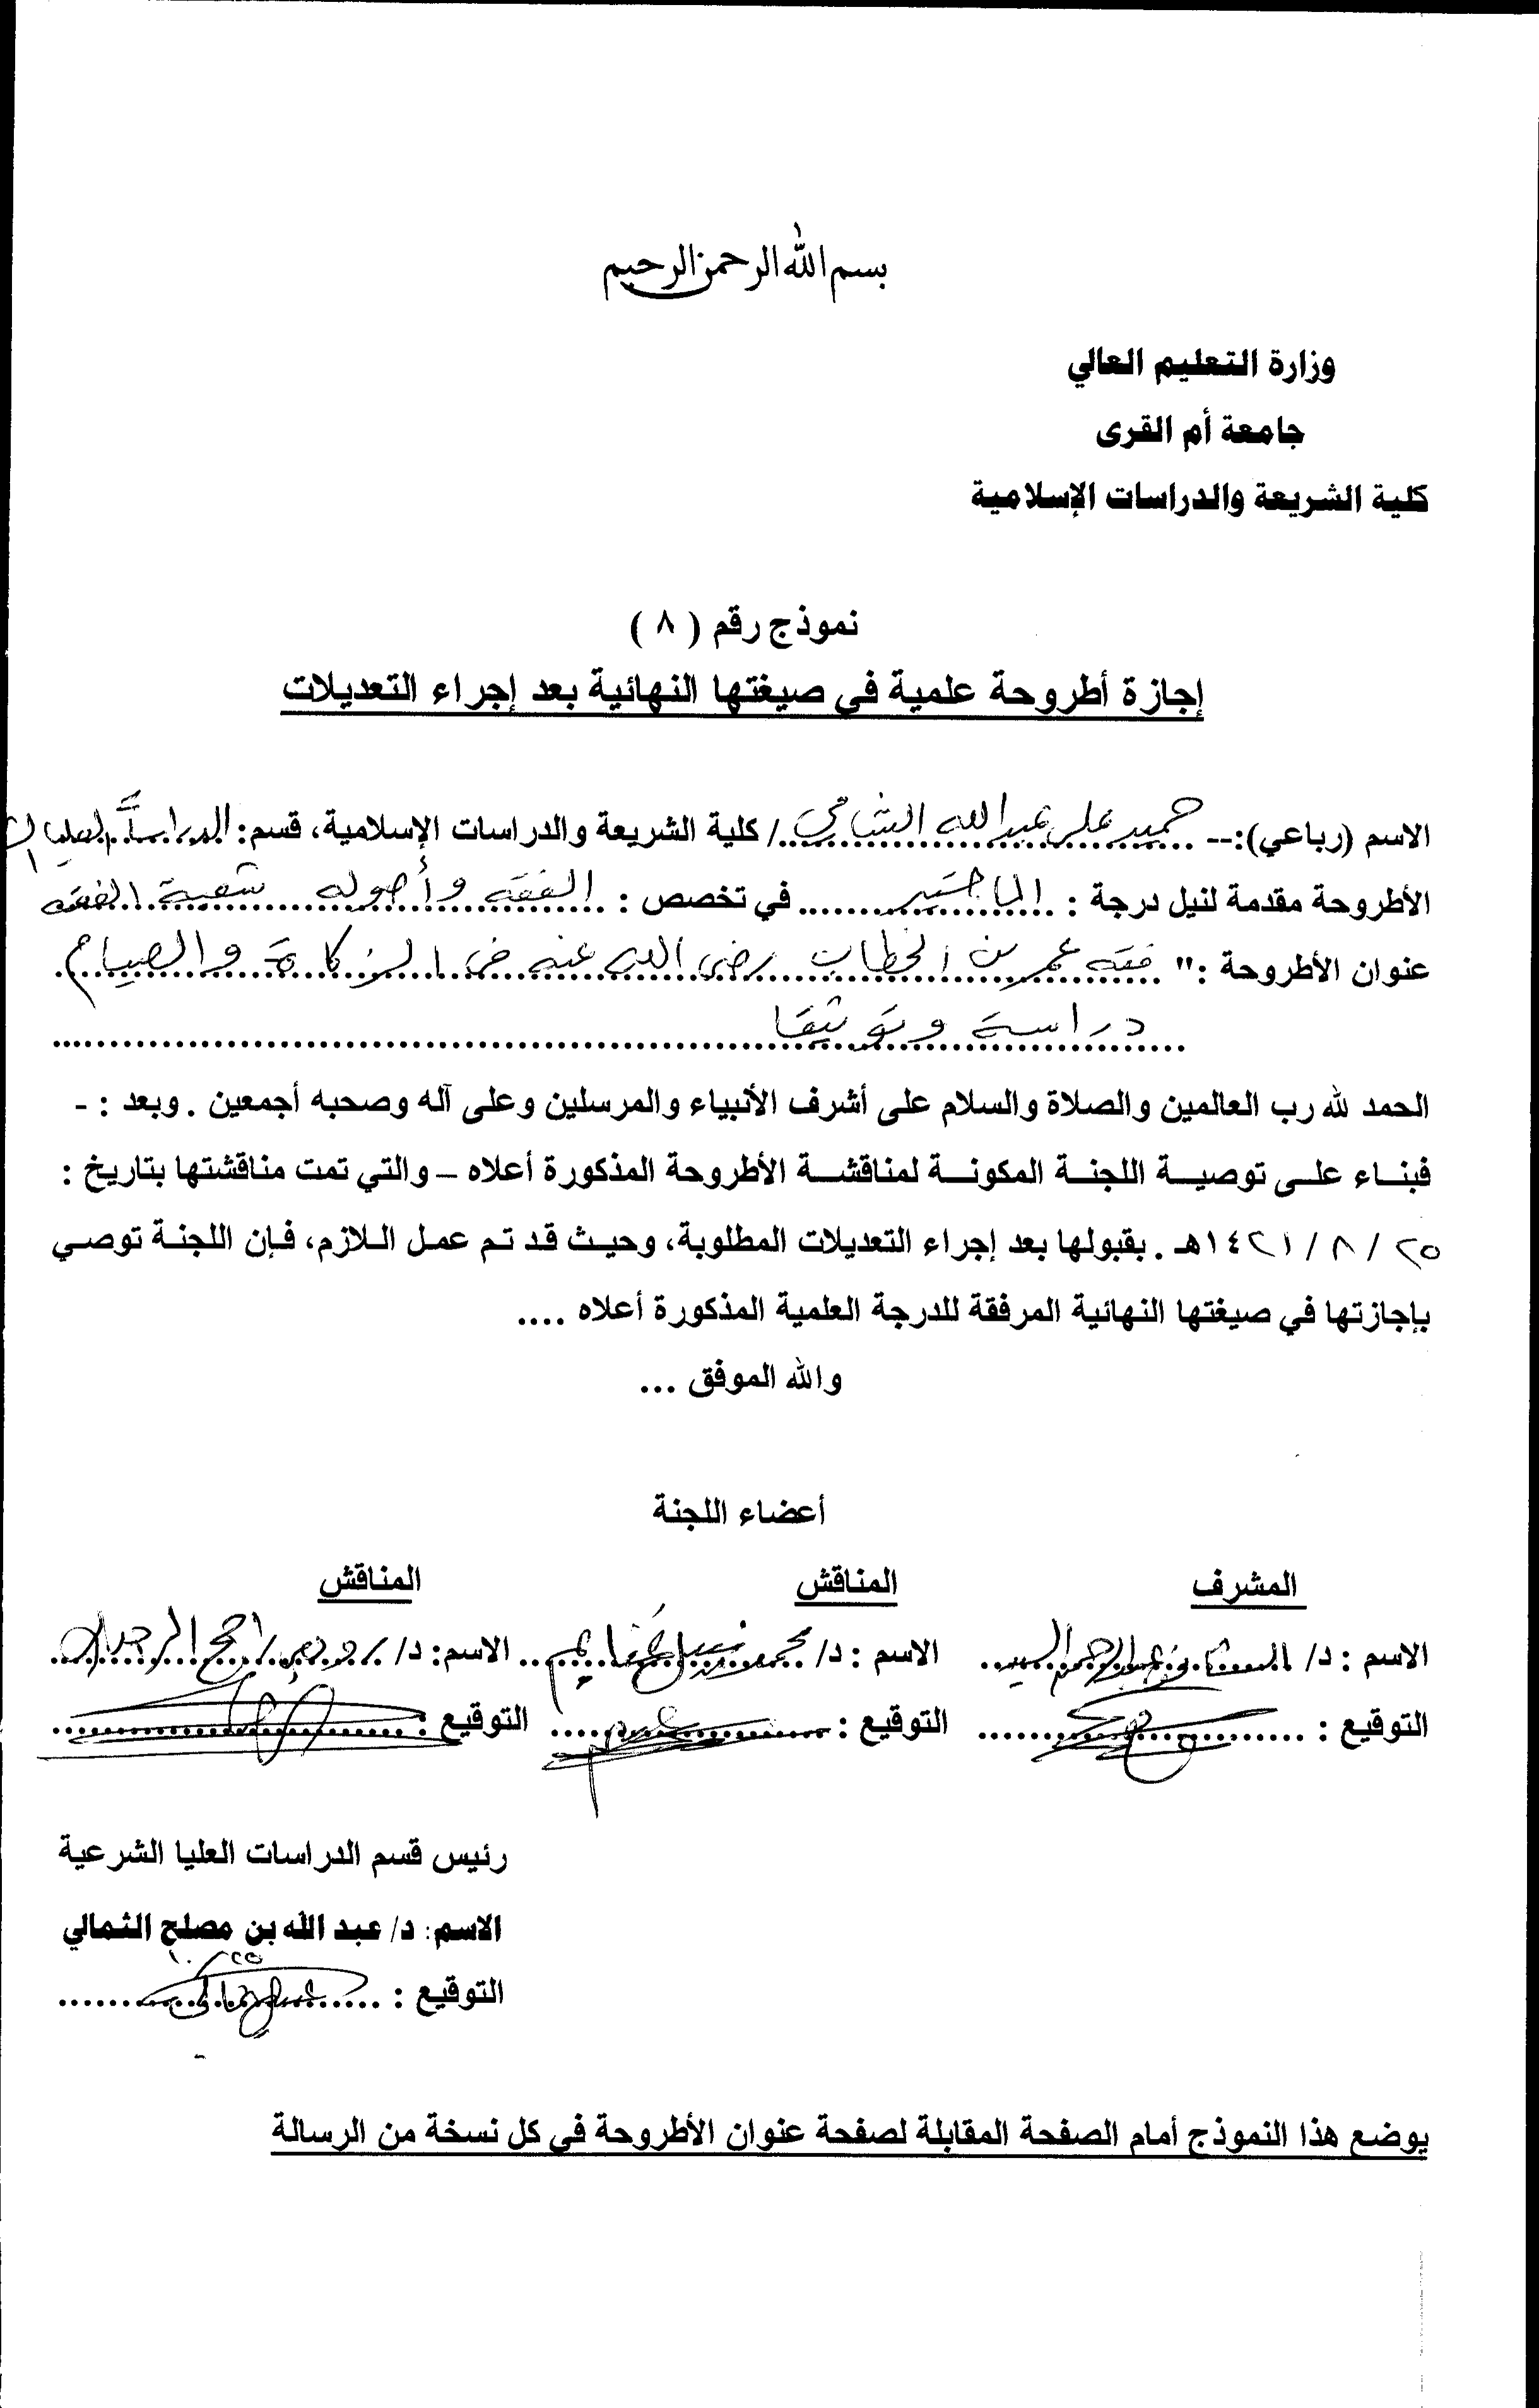 بسم الله الرحمن الرحيم
وزارة التعليم العالي
جامعة أم القرى
كلية الشريعة والدراسات الإسلامية
نموذج رقم ( ٨ )
إجازة أطروحة علمية في صيغتها النهائية بعد إجراء التعديلات
الاسم (رباعي):-- حميد علي عبدالله الشامي / كلية الشريعة والدراسات الإسلامية، قسم: الدراسات العليا
الأطروحة مقدمة لنيل درجة : الماجستير في تخصص : الفقه وأصوله شعبة الفقه
عنوان الأطروحة :" فقه عمر بن الخطاب رضي الله عنه في الزكاة والصيام
دراسة وتوثيقا
الحمد لله رب العالمين والصلاة والسلام على أشرف الأنبياء والمرسلين وعلى آله وصحبه أجمعين . وبعد : -
فبناء على توصية اللجنة المكونة لمناقشة الأطروحة المذكورة أعلاه – والتي تمت مناقشتها بتاريخ :
٢٥ / ٨ / ١٤٢١هـ . بقبولها بعد إجراء التعديلات المطلوبة، وحيث قد تم عمل اللازم، فإن اللجنة توصي
بإجازتها في صيغتها النهائية المرفقة للدرجة العلمية المذكورة أعلاه ....
والله الموفق ...
أعضاء اللجنة
المشرف المناقش المناقش
الاسم : د/ الاسم : د/ محمد الاسم: د/
التوقيع : التوقيع : التوقيع :
رئيس قسم الدراسات العليا الشرعية
الاسم: د/ عبد الله بن مصلح الثمالي
٢٥/١٠
التوقيع :
يوضع هذا النموذج أمام الصفحة المقابلة لصفحة عنوان الأطروحة في كل نسخة من الرسالة